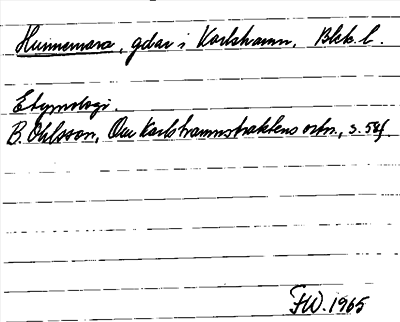 Hunnemara, gdar i Karlshamn, Blek. l.
Etymologi.
B. Ohlsson, Om Karlshamnstraktens ortn., s. 58f.
FW. 1965